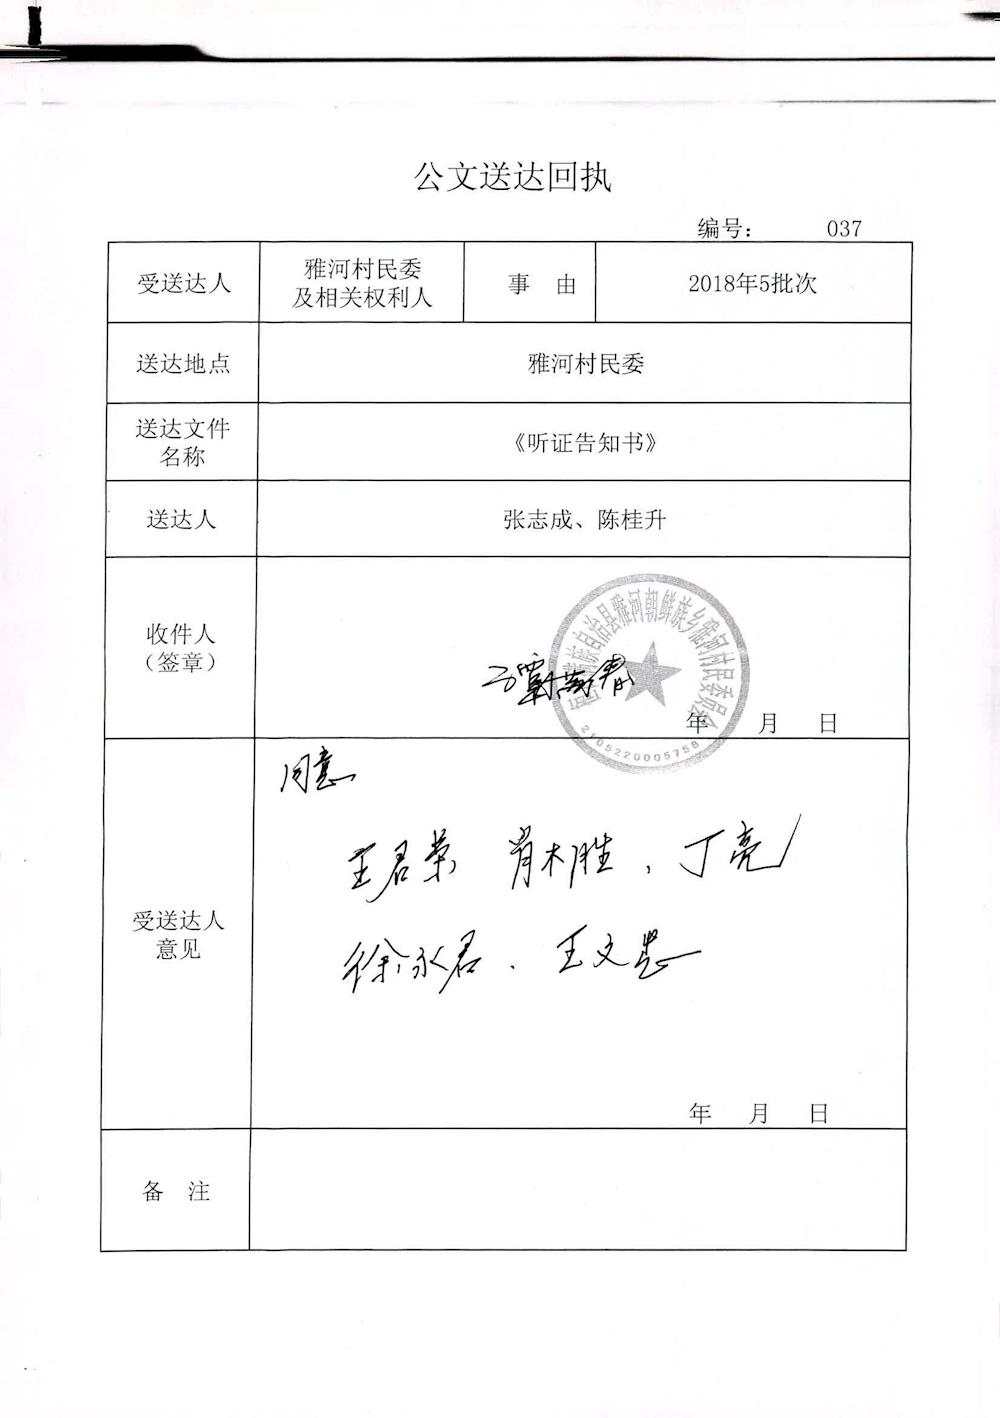 公文送达回执
编号： 037
受送达人
雅河村民委
及相关权利人
事 由
2018年5批次
送达地点
雅河村民委
送达文件
名称
《听证告知书》
送达人
张志成、陈桂升
收件人
（签章）
族自治县雅河朝鲜族乡雅河村民委员会
2105220005758
年 月 日
受送达人
意见
同意
王君荣 肖木胜、丁亮
徐永君、王文忠
年 月 日
备 注